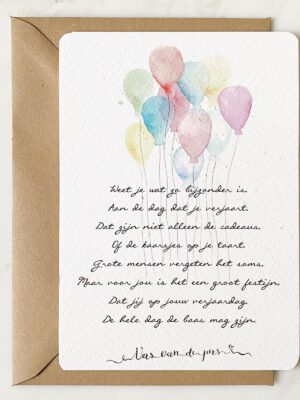 Weet je wat zo bijzonder is.
Aan de dag dat je verjaart.
Dat zijn niet alleen de cadeaus.
Of de kaarsjes op je taart.
Grote mensen vergeten het soms.
Maar voor jou is het een groot festijn.
Dat jij op jouw verjaardag.
De hele dag de baas mag zijn.
Vers van de pers